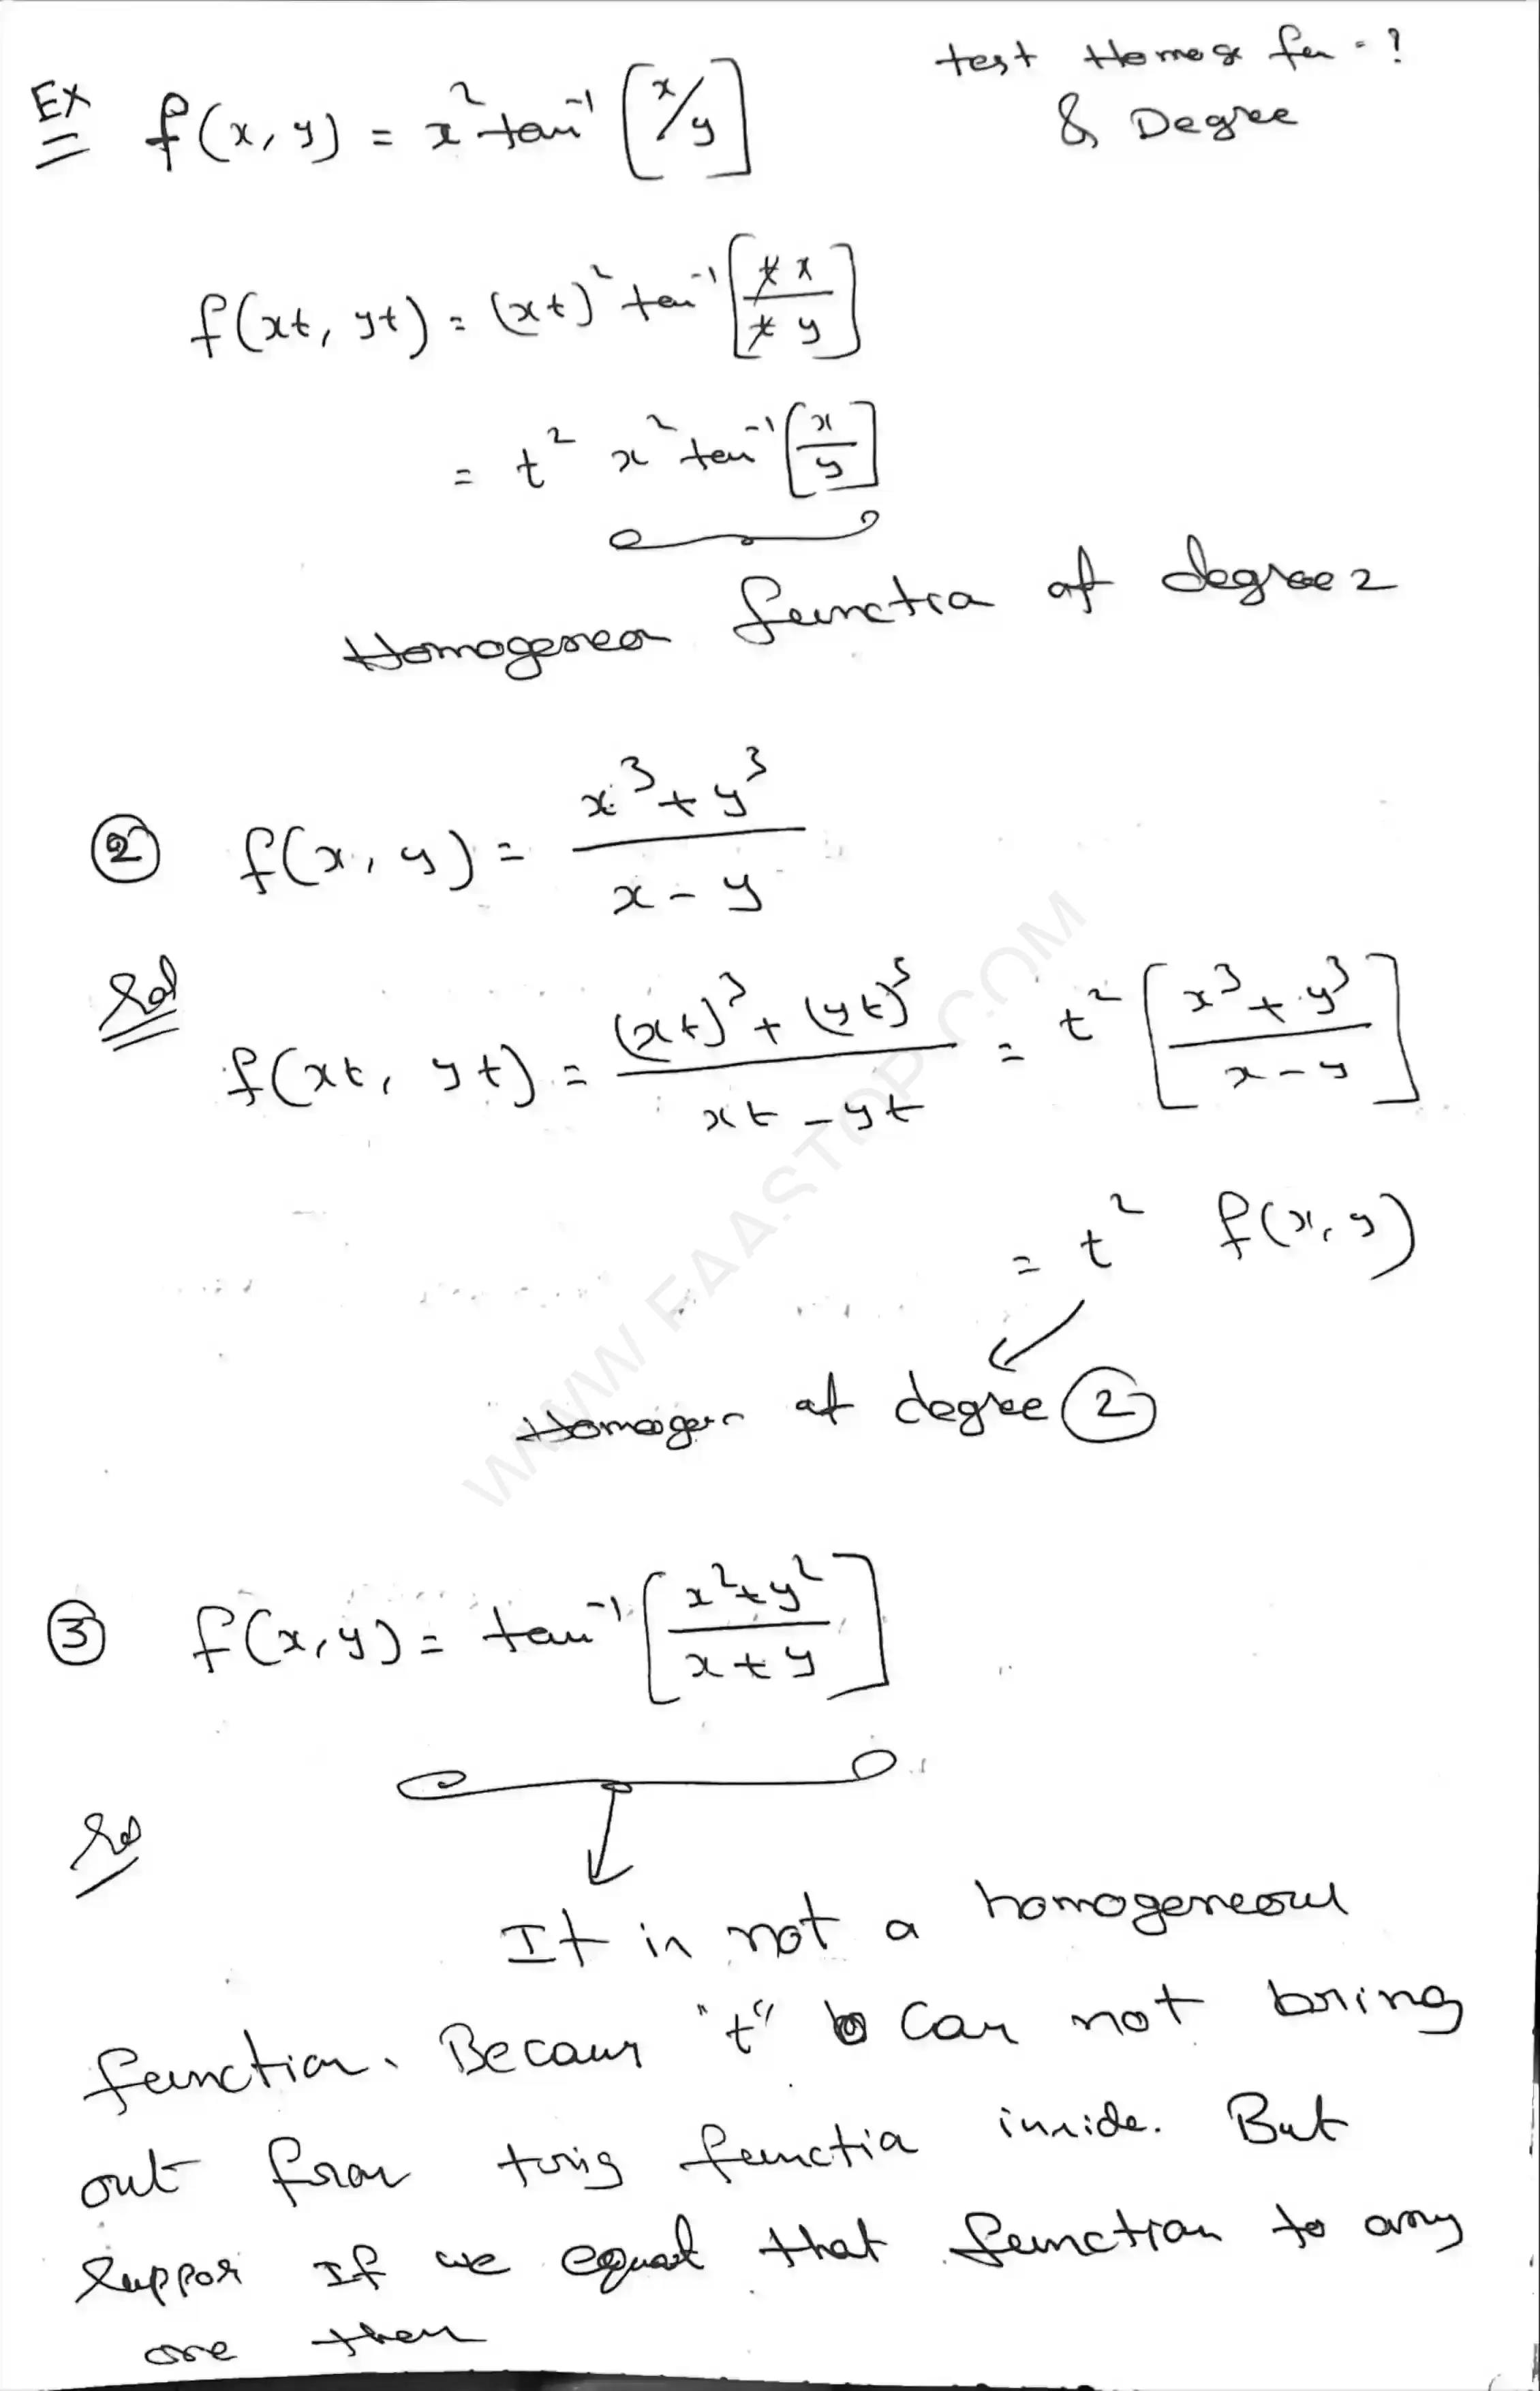 test Homog fn - ?
& Degree
EX f(x, y) = x² tan⁻¹ [x/y]
f(xt, yt) = (xt)² tan⁻¹ [tx/ty]
= t² x² tan⁻¹ [x/y]
Homogeneon functia of degree 2
② f(x, y) = x³+y³/x-y
Sol
f(xt, yt) = (xt)³+(yt)³/xt-yt = t² [x³+y³/x-y]
= t² f(x, y)
Homogen of degree ②
③ f(x,y) = tan⁻¹ [x²+y²/x+y]
Sol
It is not a homogeneous
function. Becaus "t" can not bring
out from trig functia inside. But
suppos If we equal that function to any
one then
WWW.FAASTOP.COM